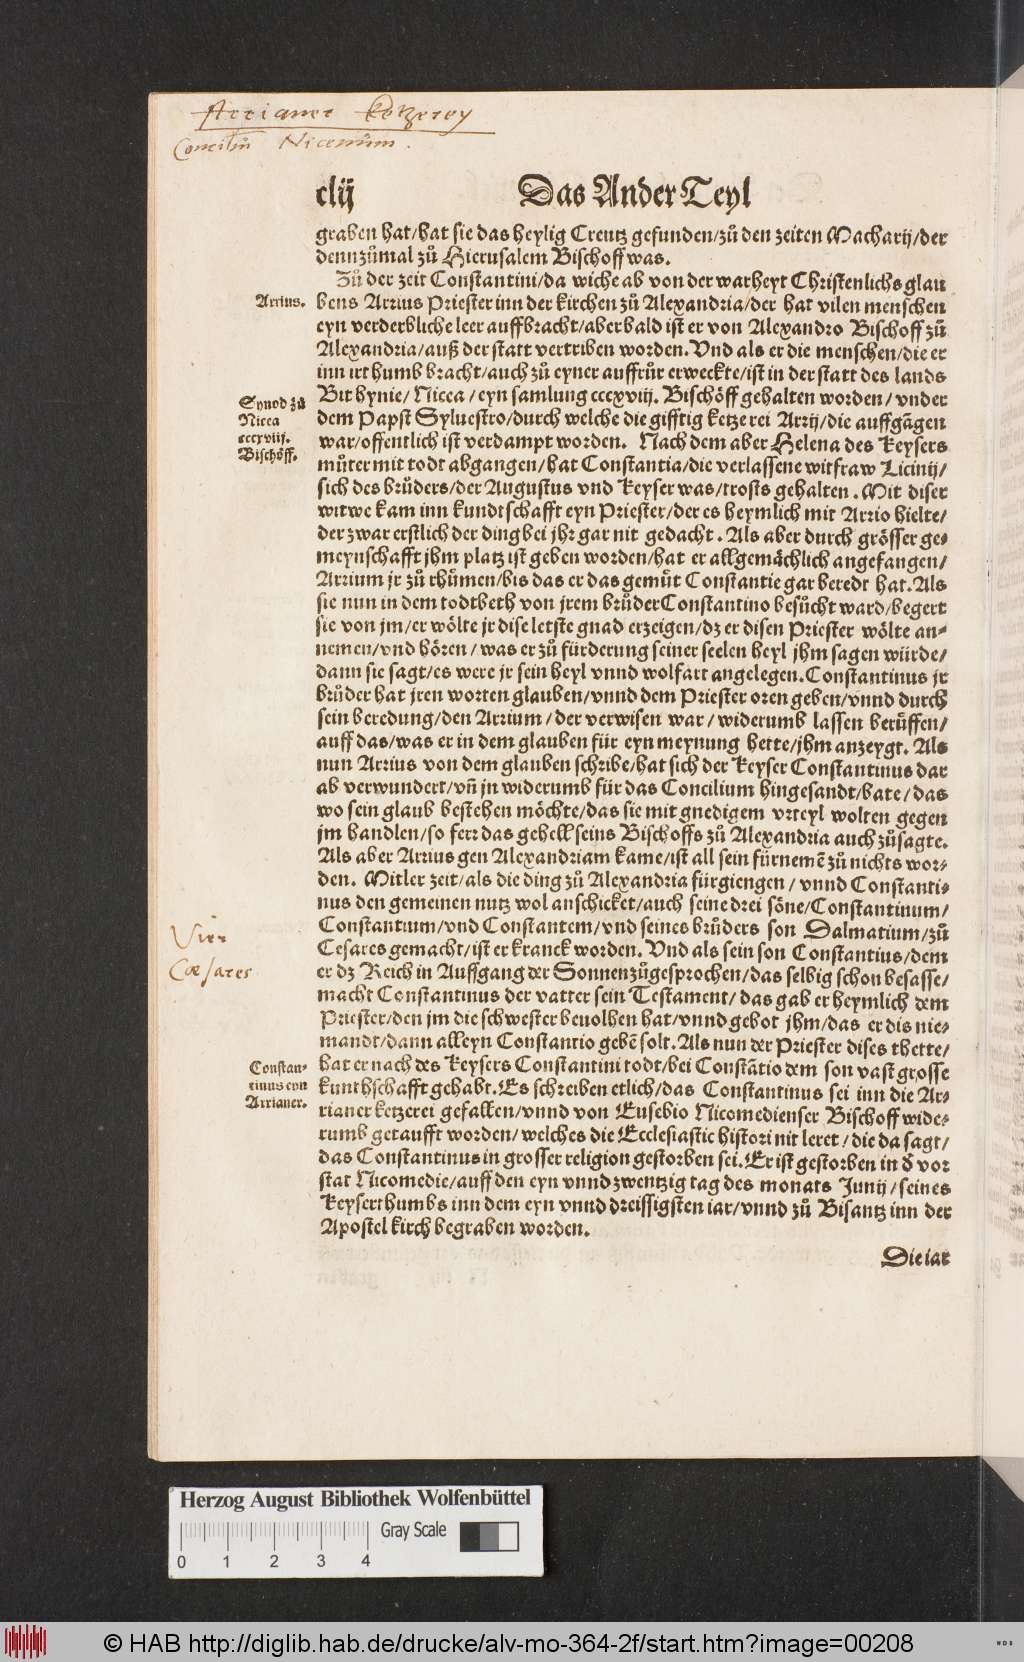 Arrianer Ketzerey
Conciliū Nicenum.
clij
Das Ander Teyl
graben hat/hat sie das heylig Creutz gefunden/zů den zeiten Macharij/der
dennzůmal zů Hierusalem Bischoff was.
Zů der zeit Constantini/da wiche ab von der warheyt Christenlichs glau
Arrius.
bens Arrius Priester inn der kirchen zů Alexandria/der hat vilen menschen
eyn verderbliche leer auffbracht/aber bald ist er von Alexandro Bischoff zů
Alexandria/auß der statt vertriben worden. Vnd als er die menschen/die er
inn irthumb bracht/auch zů eyner auffrůr erweckte/ist in der statt des lands
Synod zů
Nicea
cccxviij.
Bischöff.
Bithynie/Nicea/eyn samlung cccxviij. Bischöff gehalten worden/vnder
dem Papst Syluestro/durch welche die gifftig ketzerei Arrij/die auffgāgen
war/offentlich ist verdampt worden. Nach dem aber Helena des Keysers
můter mit todt abgangen/hat Constantia/die verlassene witfraw Licinij/
sich des brůders/der Augustus vnd Keyser was/trosts gehalten. Mit diser
witwe kam inn kundtschafft eyn Priester/der es heymlich mit Arrio hielte/
der zwar erstlich der ding bei jhr gar nit gedacht. Als aber durch grösser ge-
meynschafft jhm platz ist geben worden/hat er allgemächlich angefangen/
Arrium jr zů rhůmen/bis das er das gemůt Constantie gar beredt hat. Als
sie nun in dem todtbeth von jrem brůder Constantino besůcht ward/begert
sie von jm/er wölte jr dise letste gnad erzeigen/dz er disen Priester wölte an-
nemen/vnd hören/was er zů fürderung seiner seelen heyl jhm sagen würde/
dann sie sagt/es were jr sein heyl vnnd wolfart angelegen. Constantinus jr
brůder hat jren worten glauben/vnnd dem Priester oren geben/vnnd durch
sein beredung/den Arrium/der verwisen war/widerumb lassen berůffen/
auff das/was er in dem glauben für eyn meynung hette/jhm anzeygt. Als
nun Arrius von dem glauben schribe/hat sich der Keyser Constantinus dar
ab verwundert/vn̄ jn widerumb für das Concilium hingesandt/bate/das
wo sein glaub bestehen möchte/das sie mit gnedigem vrteyl wolten gegen
jm handlen/so ferr das gehell seins Bischoffs zů Alexandria auch zůsagte.
Als aber Arrius gen Alexandriam kame/ist all sein fürnemē zů nichts wor-
den. Mitler zeit/als die ding zů Alexandria fürgiengen/vnnd Constanti-
nus den gemeinen nutz wol anschicket/auch seine drei söne/Constantinum/
Vier
Cæsares
Constantium/vnd Constantem/vnd seines brůders son Dalmatium/zů
Cesares gemacht/ist er kranck worden. Vnd als sein son Constantius/dem
er dz Reich in Auffgang der Sonnen zůgesprochen/das selbig schon besasse/
macht Constantinus der vatter sein Testament/das gab er heymlich dem
Priester/den jm die schwester beuolhen hat/vnnd gebot jhm/das er dis nie-
mandt/dann alleyn Constantio gebē solt. Als nun der Priester dises thette/
Constan-
tinus eyn
Arrianer.
hat er nach des Keysers Constantini todt/bei Constātio dem son vast grosse
kunthschafft gehabt. Es schreiben etlich/das Constantinus sei inn die Ar-
rianer ketzerei gefallen/vnnd von Eusebio Nicomedienser Bischoff wide-
rumb getaufft worden/welches die Ecclesiastic histori nit leret/die da sagt/
das Constantinus in grosser religion gestorben sei. Er ist gestorben in d̄ vor
stat Nicomedie/auff den eyn vnnd zwentzig tag des monats Junij/seines
Keyserthumbs inn dem eyn vnnd dreissigsten iar/vnnd zů Bisantz inn der
Apostel kirch begraben worden.
Die iar
Herzog August Bibliothek Wolfenbüttel
Gray Scale
0 1 2 3 4
© HAB http://diglib.hab.de/drucke/alv-mo-364-2f/start.htm?image=00208